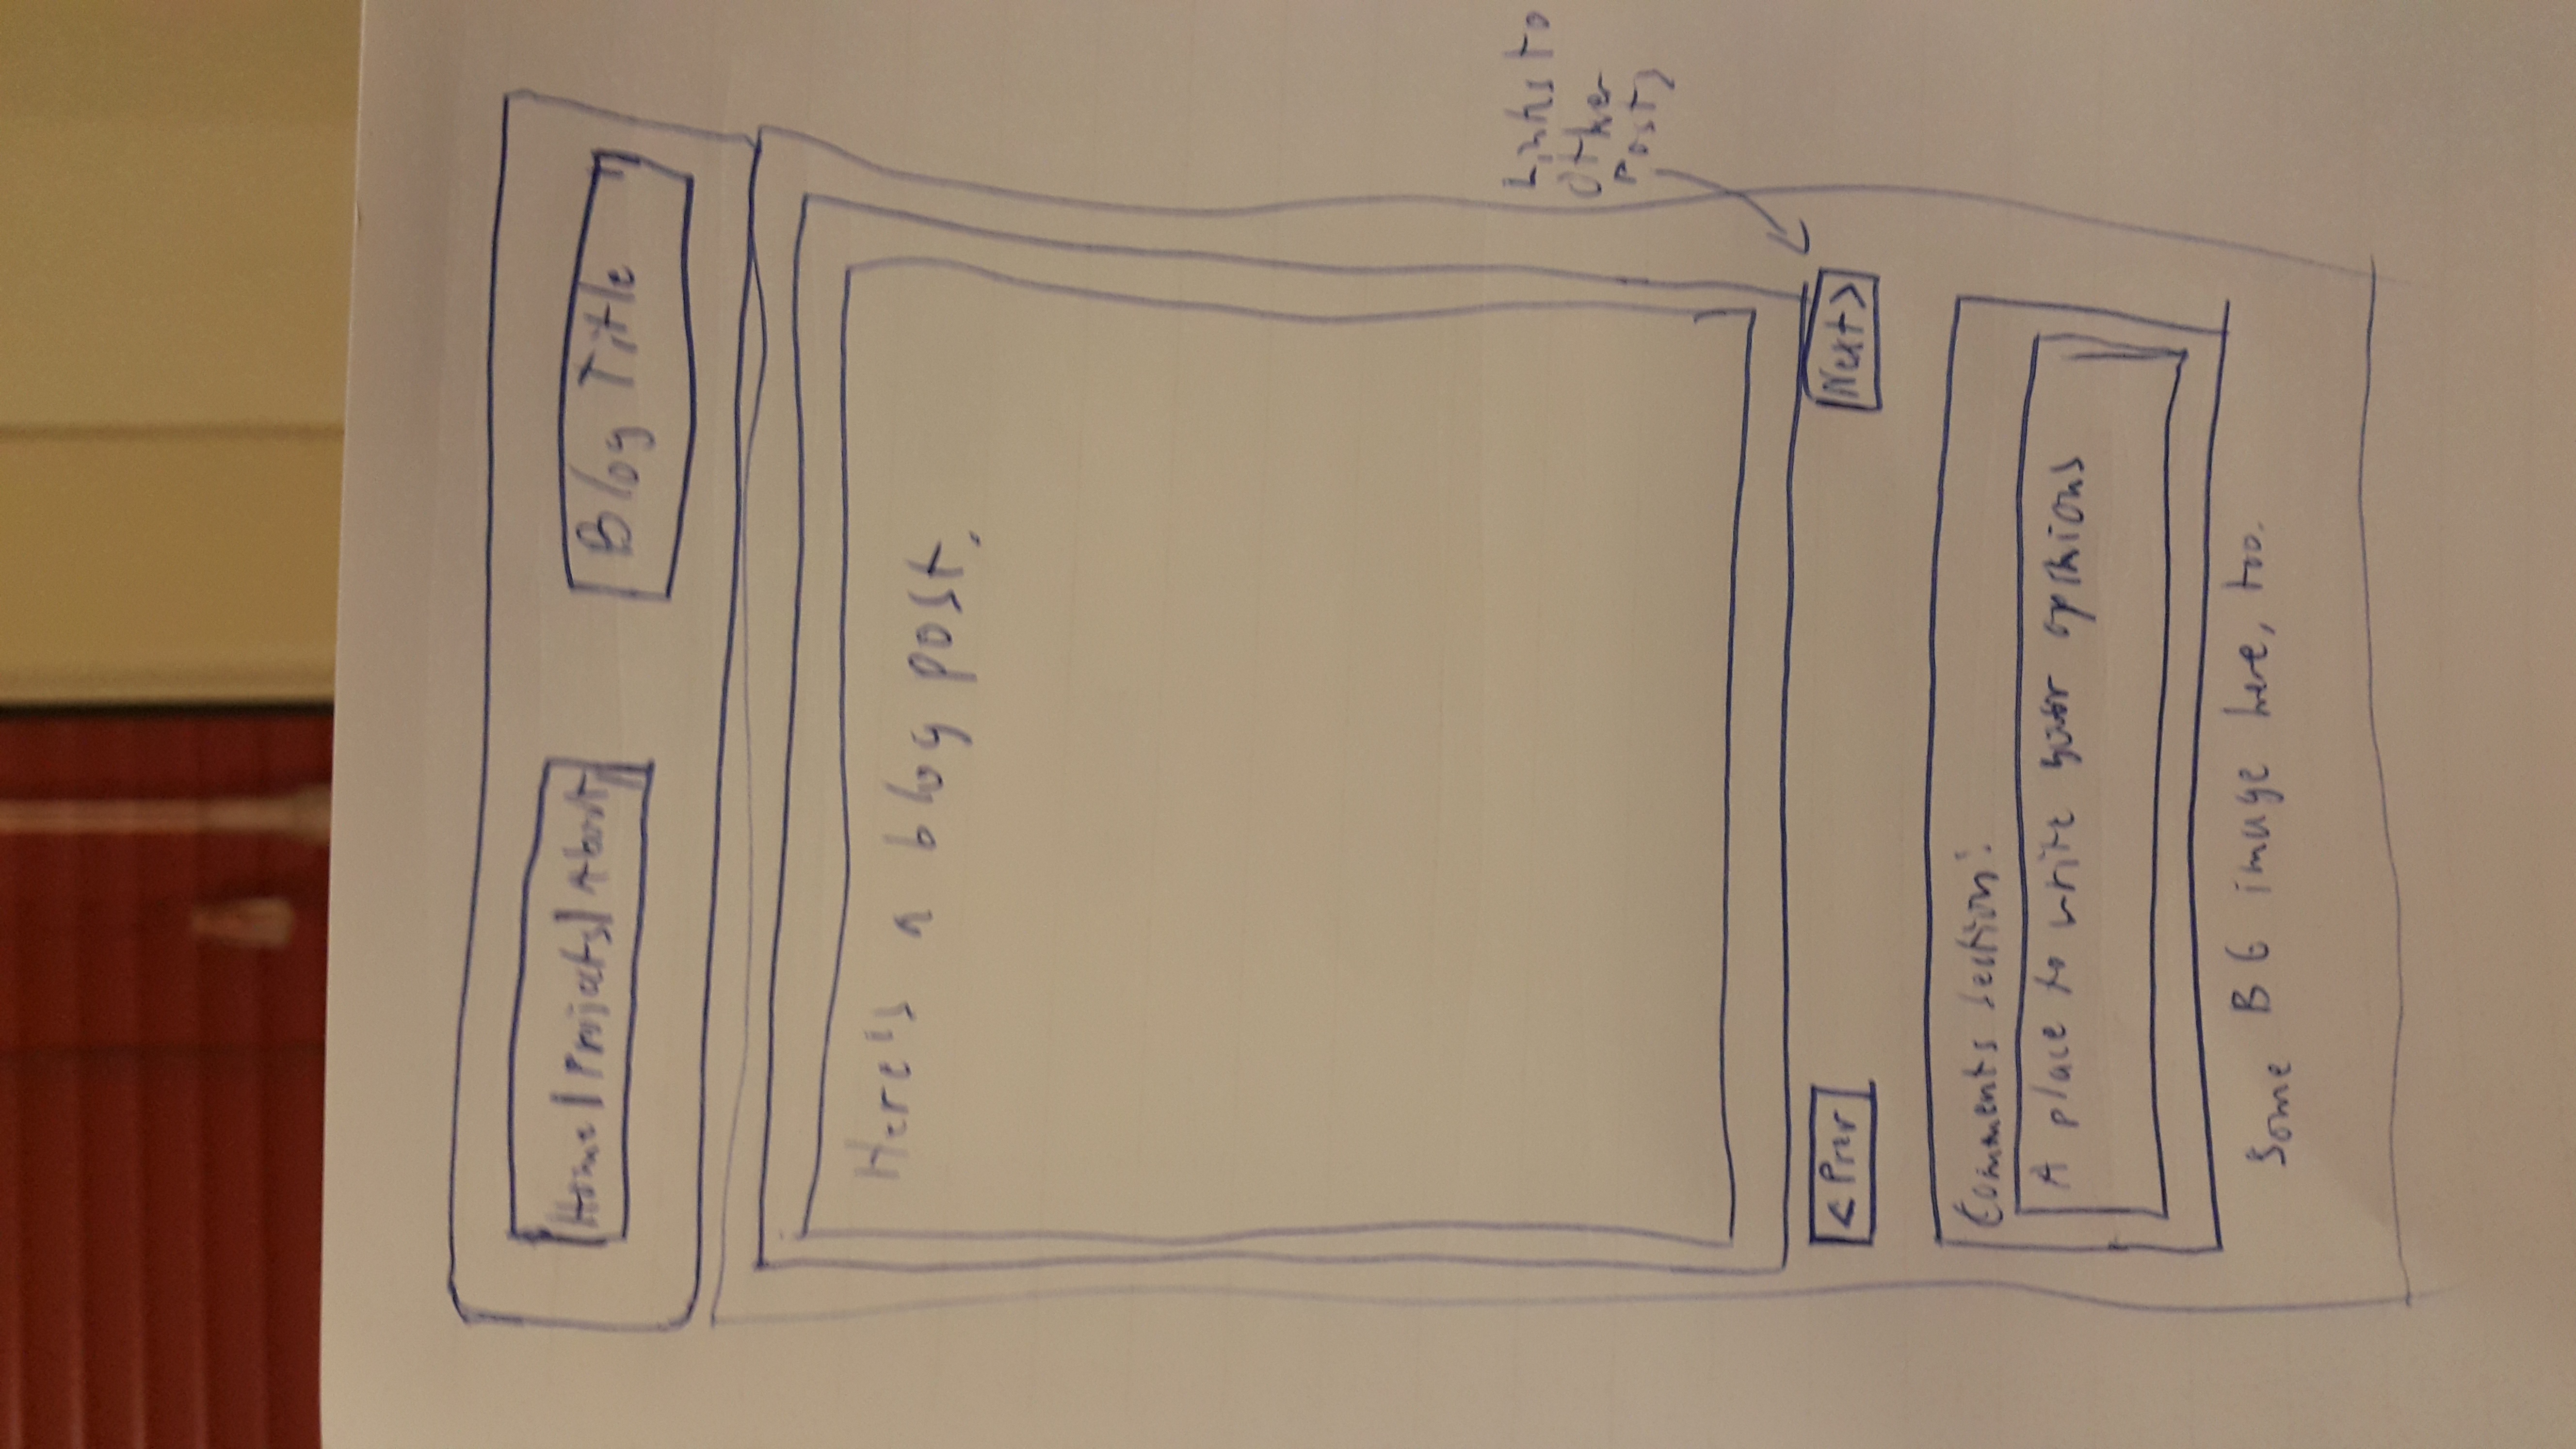 Home | Projects | About
Blog Title
Here's a blog post.
Links to
Other
Posts
< Prev
Next >
Comments section:
A place to write your opinions
Some BG image here, too.